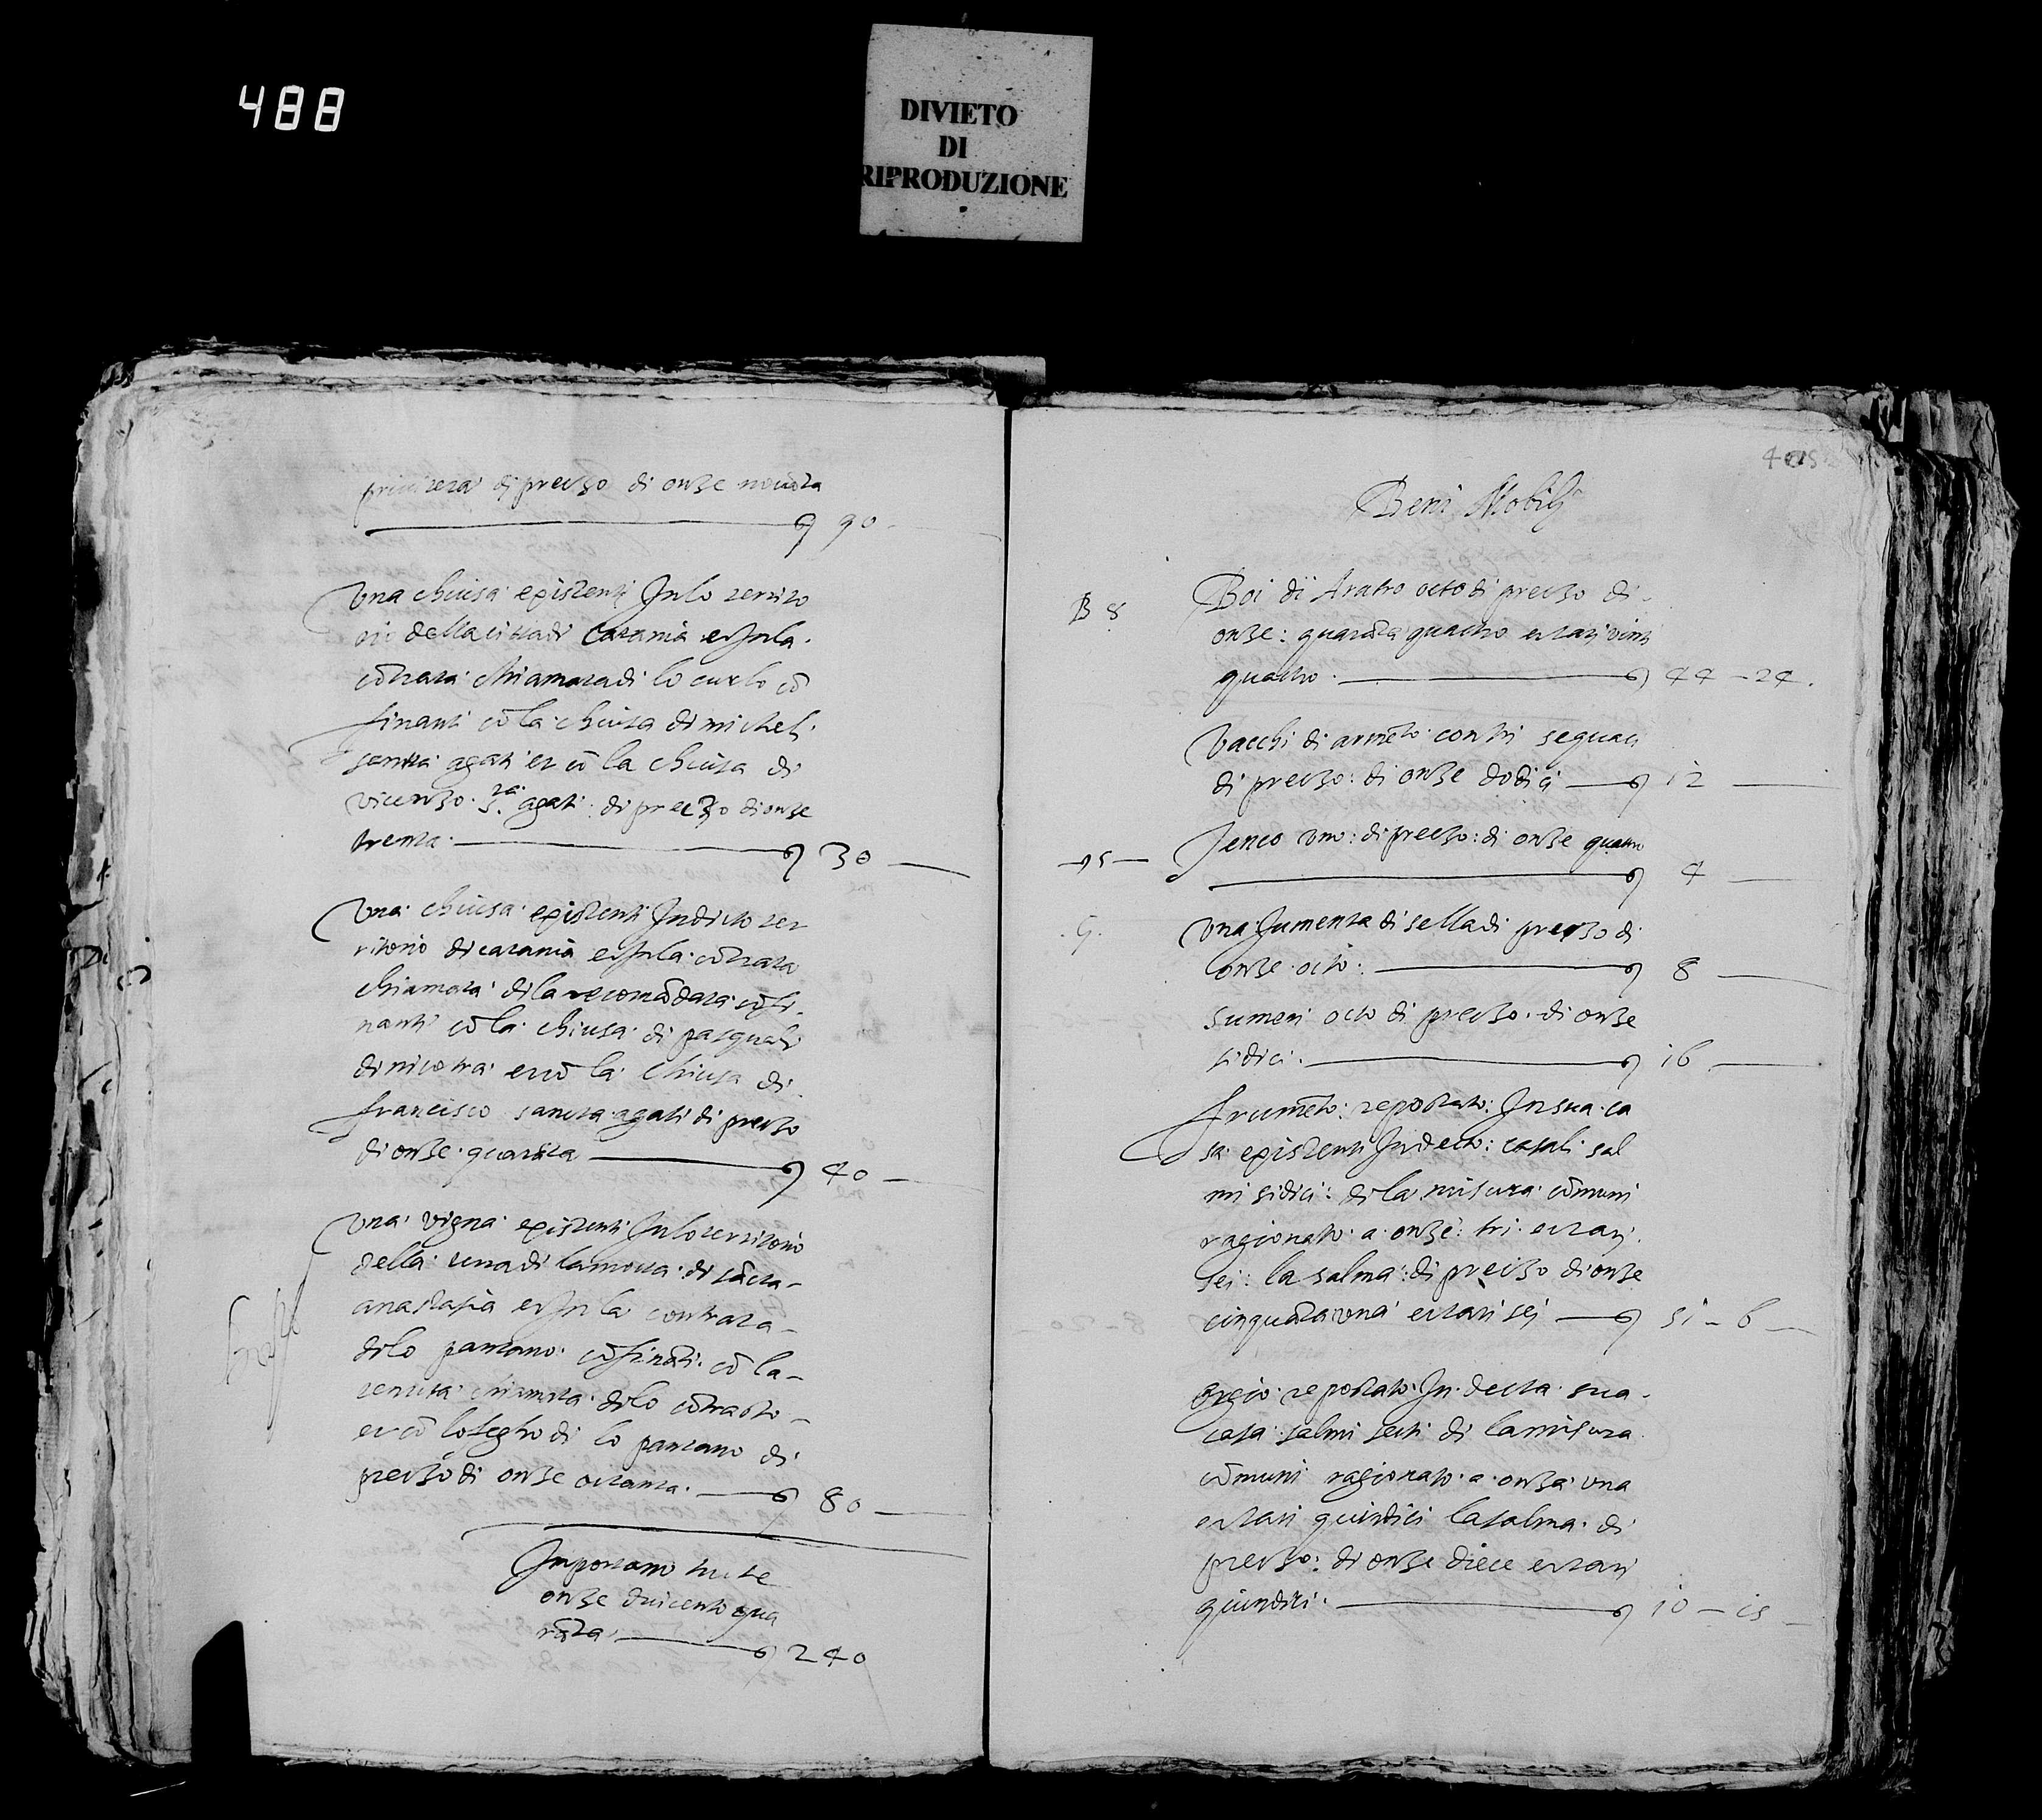 488
DIVIETO
DI
RIPRODUZIONE
di preczo di onze novāta
90
Una chiusa existenti In lo territo
rio della citta di Catania et In la
cōtrata chiamata di lo curlo cō
finanti cō la chiusa di micheli
santa agati et cō la chiusa di
vicenzo s.ta agati di preczo di onze
trenta 30
Una chiusa existenti In dicto ter
ritorio di catania et In la cōtrata
chiamata di la recomādata cōfi
nanti cō la chiusa di pasquali
di nicotra et cō la chiusa di
francisco sancta agati di preczo
di onze quarāta 40
Una vigna existenti In lo territorio
della terra di la motta di sācta
anastasia et In la contrata
di lo pantano cōfināti cō la
tenuta chiamata di lo cōtrasto
et cō lo fegho di lo pantano di
preczo di onze octanta 80
Importano tutte
onze duicento qua
rāta 240
Beni Mobili
B 8 Boi di Aratro octo di preczo di
onze: quarāta quattro et tarì vinti
quattro 44 - 24
Vacchi di armēto con tri sequaci
di preczo: di onze dodici 12
Jenco uno: di preczo: di onze quattro
4
Una Jumenta di sella di preczo di
onze octo 8
Sumeri octo di preczo di onze
sidici 16
frumēto: repostato: In sua ca
sa existenti In decto: casali sal
mi sidici: di la misura cōmuni
ragionato a onze: tri et tarì
sei: la salma: di preczo di onze
cinquāta una et tarì sei 51 - 6
Orgio repostato In decta sua
casa salmi secti di la misura
cōmuni ragionato a onza una
et tarì quindici la salma di
preczo: di onze diece et tarì
quindici 10 - 15